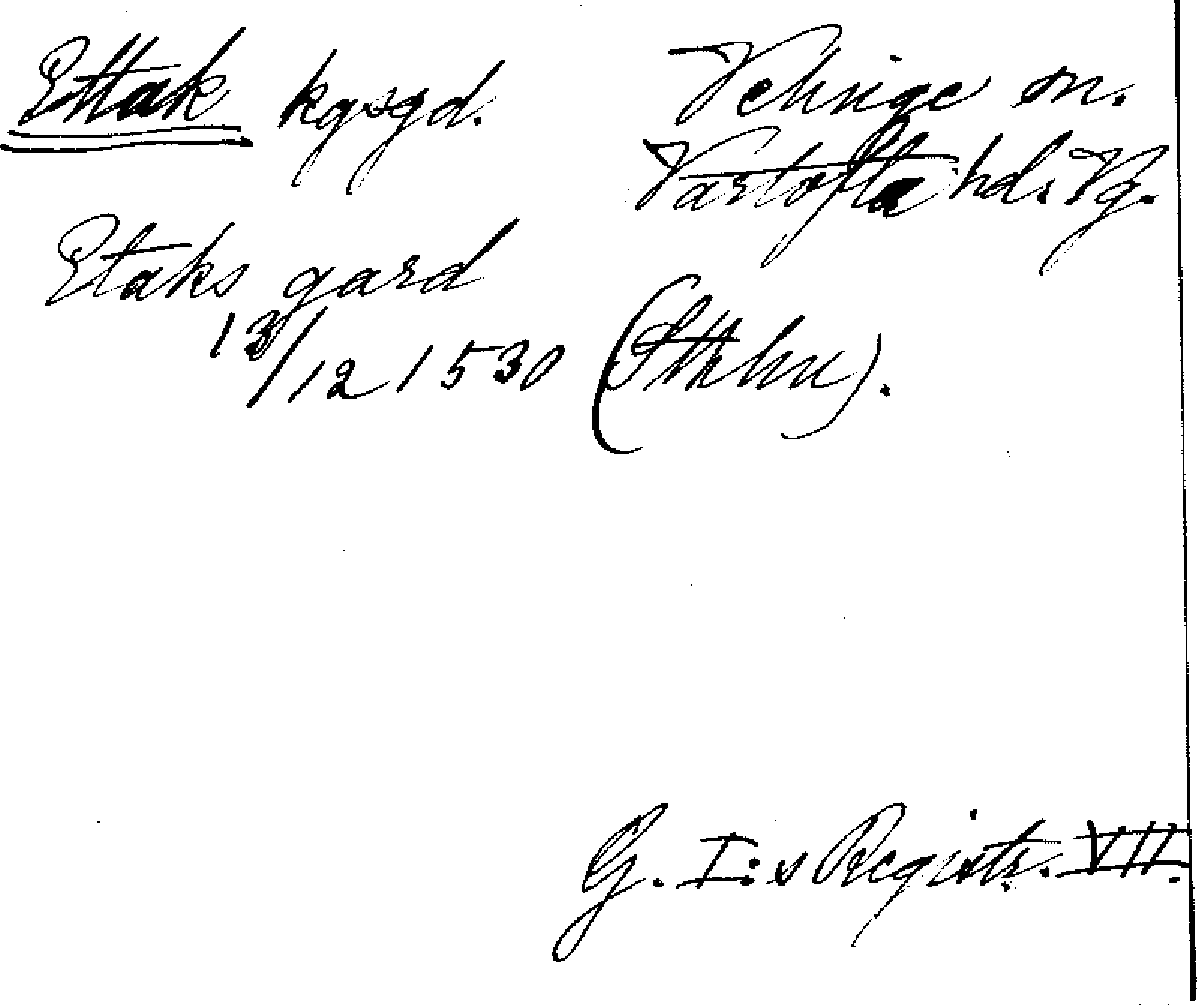 Ettak kgsgd.
Velinge sn.
Vartofta hd. Vg.
Etaks gard
13/12 1530 (Sthlm).
G. I:s Registr. VII.